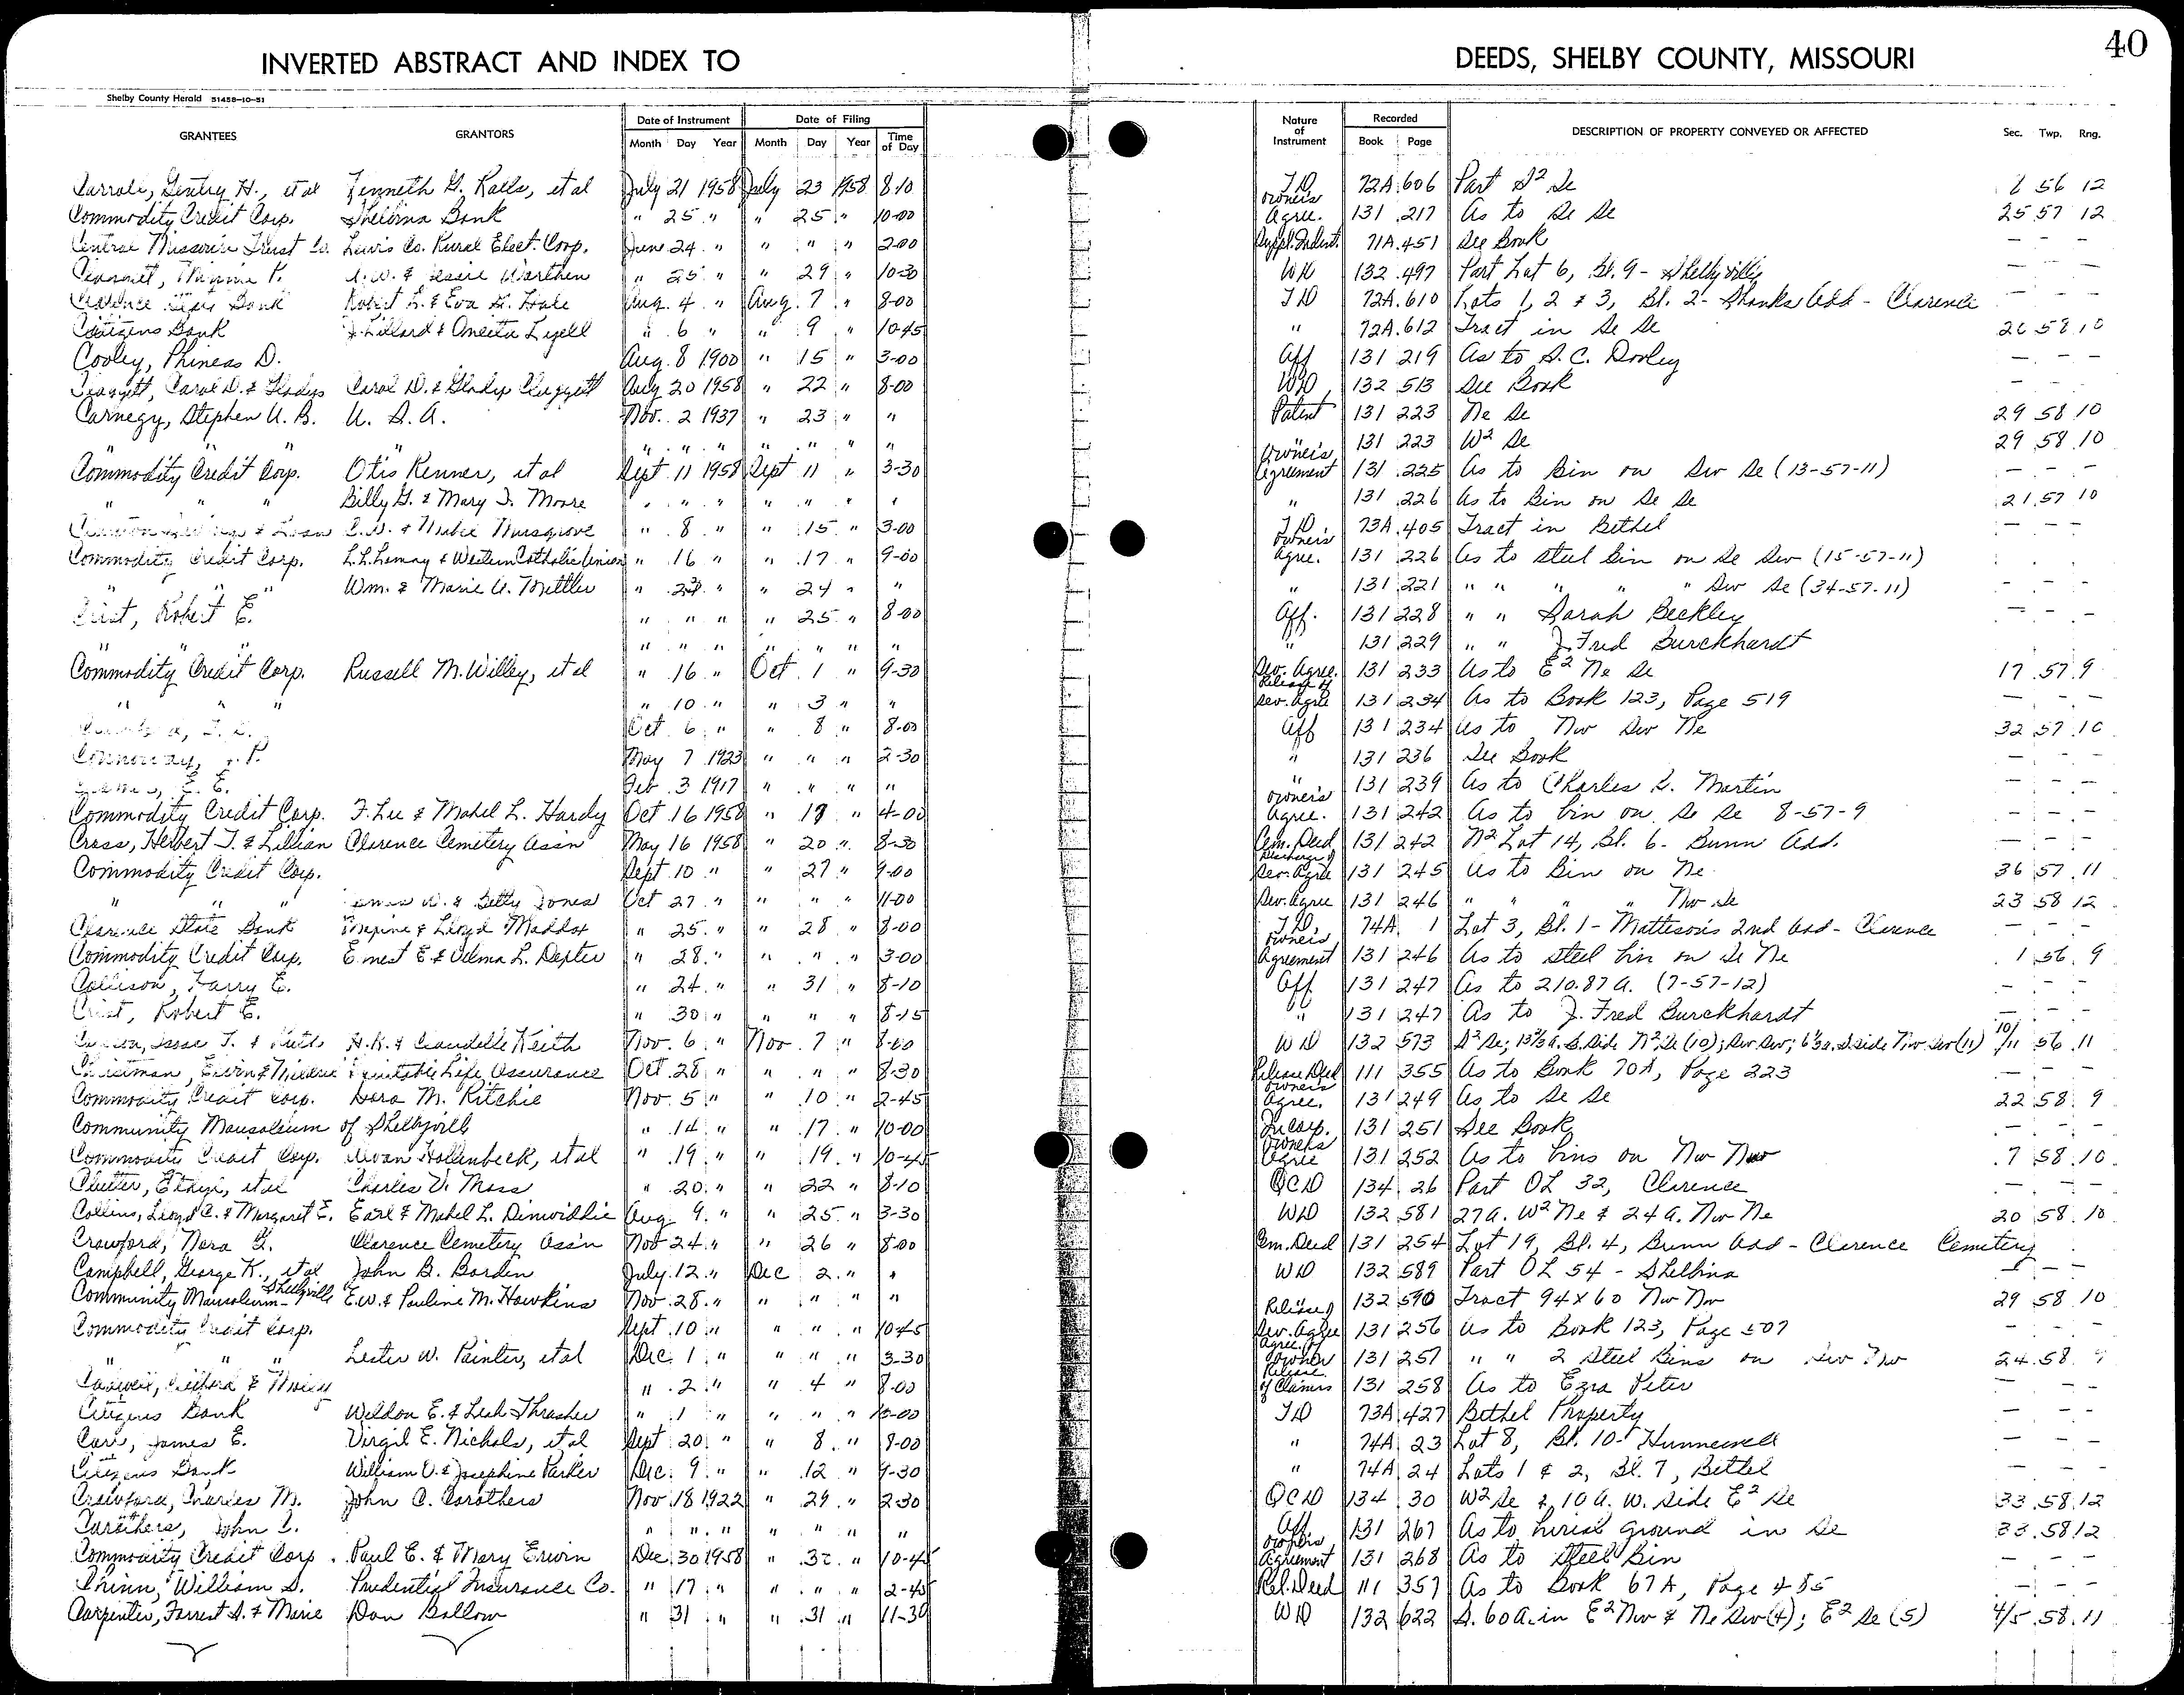 40
INVERTED ABSTRACT AND INDEX TO DEEDS, SHELBY COUNTY, MISSOURI
Shelby County Herald 51458-10-51
GRANTEES GRANTORS Date of Instrument Date of Filing Nature of Instrument Recorded DESCRIPTION OF PROPERTY CONVEYED OR AFFECTED Sec. Twp. Rng.
Month Day Year Month Day Year Time of Day Book Page
Gentry H., et al Kenneth G. Ralls, et al July 21 1958 July 23 1958 8-10 TD 72A 606 Part S2 Se 56 12
Commodity Credit Corp. Shelbina Bank " 25 " " 25 " 10-00 Owner's Agree. 131 217 As to Se Se 25 57 12
Central Missouri Trust Co. Lewis Co. Rural Elect. Corp. June 24 " " " " 2-00 Suppl. Indent. 71A 451 See Book — — —
" 25 " " 29 " 10-30 WD 132 497 Part Lot 6, Bl. 9 - Shelbyville — — —
Clarence State Bank Robert L. & Eva Hale Aug. 4 " Aug. 7 " 8-00 TD 72A 610 Lots 1, 2 & 3, Bl. 2 - Shanks Add - Clarence — — —
Citizens Bank J. Lillard & Oneeta Lyell " 6 " " 9 " 10-45 " 72A 612 Tract in Se Se 26 58 10
Cooley, Phineas D. Aug. 8 1900 " 15 " 3-00 Aff 131 219 As to S. C. Dooley — — —
Claggett, Carol D. & Gladys Carol D. & Gladys Claggett July 20 1958 " 22 " 8-00 WD 132 513 See Book — — —
Carnegy, Stephen U. B. U. S. A. Nov. 2 1937 " 23 " " Patent 131 223 Ne Se 29 58 10
" " " " " " " " " " " 131 223 W2 Se 29 58 10
Commodity Credit Corp. Otis Renner, et al Sept 11 1958 Sept 11 " 3-30 Owner's Agreement 131 225 As to Bin on Sw Se (13-57-11) — — —
" " " Billy G. & Mary I. Moore " " " " " " " " 131 226 As to Bin on Se Se 21 57 10
& Loan C.D. & Mabel Musgrove " 8 " " 15 " 3-00 TD 73A 405 Tract in Bethel — — —
Commodity Credit Corp. L.L. Lemay & Western Catholic Union " 16 " " 17 " 9-00 Owners Agree. 131 226 As to steel bin on Se Sw (15-57-11)
" " " Wm. & Marie A. Mettler " 23 " " 24 " " " 131 221 " " " " Sw Se (34-57-11) — — —
Crist, Robert E. " " " " 25 " 8-00 Aff. 131 228 " " Sarah Beckley — — —
" " " " " " " " " " 131 229 " " J. Fred Burckhardt
Commodity Credit Corp. Russell M. Willey, et al " 16 " Oct 1 " 9-30 Sev. Agree. 131 233 As to E2 Ne Se 17 57 9
" " " " 10 " " 3 " " Release of Sev. Agree 131 234 As to Book 123, Page 519 — — —
Oct 6 " " 8 " 8-00 Aff 131 234 As to Nw Sw Ne 32 57 10
May 7 1923 " " " 2-30 " 131 236 See Book — — —
Feb 3 1917 " " " " " 131 239 As to Charles S. Martin — — —
Commodity Credit Corp. F. Lee & Mabel L. Hardy Oct 16 1958 " 18 " 4-00 Owner's Agree. 131 242 As to bin on Se Se 8-57-9 — — —
Cross, Herbert T. & Lillian Clarence Cemetery Ass'n May 16 1958 " 20 " 8-30 Cem. Deed 131 242 N2 Lot 14, Bl. 6 - Bunn Add. — — —
Commodity Credit Corp. Sept 10 " " 27 " 9-00 Discharge of Sev. Agree 131 245 As to Bin on Ne 36 57 11
" " " & Betty Jones Oct 27 " " " " 11-00 Sev. Agree 131 246 " " " " Nw Se 23 58 12
Clarence State Bank Maxine & Lloyd Maddox " 25 " " 28 " 8-00 TD 74A 1 Lot 3, Bl. 1 - Mattison's 2nd Add - Clarence — — —
Commodity Credit Corp. Ernest E. & Velma L. Depter " 28 " " " " 3-00 Owner's Agreement 131 246 As to steel bin on Se Ne 1 56 9
Collison, Harry E. " 24 " " 31 " 8-10 Aff 131 247 As to 210.87 A. (7-57-12) — — —
Crist, Robert E. " 30 " " " " 8-15 " 131 247 As to J. Fred Burckhardt — — —
H.K. & Claudelle Keith Nov. 6 " Nov. 7 " 8-00 WD 132 573 10/11 56 11
Equitable Life Assurance Oct. 28 " " " " 8-30 Release Deed 111 355 As to Book 70A, Page 223 — — —
Commodity Credit Corp. Dora M. Ritchie Nov. 5 " " 10 " 2-45 Owner's Agree. 131 249 As to Se Se 22 58 9
Community Mausoleum of Shelbyville " 14 " " 17 " 10-00 Incorp. 131 251 See Book — — —
Commodity Credit Corp. Hollenbeck, et al " 19 " " 19 " 10-45 Owners Agree 131 252 As to bins on Nw Nw 7 58 10
et al Charles V. Moss " 20 " " 22 " 8-10 QCD 134 26 Part OL 32, Clarence — — —
Collins, Lloyd C. & Margaret E. Earl & Mabel L. Dinwiddie Aug. 9 " " 25 " 3-30 WD 132 581 27 A. W2 Ne & 24 A. Nw Ne 20 58 10
Crawford, Nora G. Clarence Cemetery Ass'n Nov 24 " " 26 " 8-00 Cem. Deed 131 254 Lot 19, Bl. 4, Bunn Add - Clarence Cemetery
Campbell, George K., et al John B. Borden July 12 " Dec 2 " " WD 132 589 Part OL 54 - Shelbina — — —
Community Mausoleum - Shelbyville E.W. & Pauline M. Hawkins Nov. 28 " " " " " 132 590 Tract 94 x 60 Nw Nw 29 58 10
Commodity Credit Corp. Sept 10 " " " " 10-45 Release of Sev. Agree 131 256 As to Book 123, Page 507 — — —
" " " Lester W. Painter, et al Dec. 1 " " " " 3-30 Agree. of Owner 131 257 " " 2 Steel Bins on Sw Nw 24 58 9
" 2 " " 4 " 8-00 Release of Claims 131 258 As to Ezra Peter — — —
Citizens Bank Weldon E. & Leah Thrasher " 1 " " " " 10-00 TD 73A 427 Bethel Property — — —
Carr, James E. Virgil E. Nichols, et al Sept 20 " " 8 " 9-00 " 74A 23 Lot 8, Bl. 10 - Hunnewell — — —
Citizens Bank William O. & Josephine Parker Dec. 9 " " 12 " 9-30 " 74A 24 Lots 1 & 2, Bl. 7, Bethel — — —
Crawford, Charles M. John C. Carothers Nov 18 1922 " 29 " 2-30 QCD 134 30 W2 Se & 10 A. W. Side E2 Se 33 58 12
Carothers, John C. " " " " " " " Aff 131 267 As to burial ground in Se 33 58 12
Commodity Credit Corp. Paul E. & Mary Erwin Dec. 30 1958 " 30 " 10-45 Owner's Agreement 131 268 As to Steel Bin — — —
Chinn, William S. Prudential Insurance Co. " 17 " " " " 2-45 Rel. Deed 111 357 As to Book 67A, Page 485 — — —
Carpenter, Forrest S. & Marie Dan Ballow " 31 " " 31 " 11-30 WD 132 622 S. 60 A. in E2 Nw & Ne Sw (4); E2 Se (5) 4/5 58 11